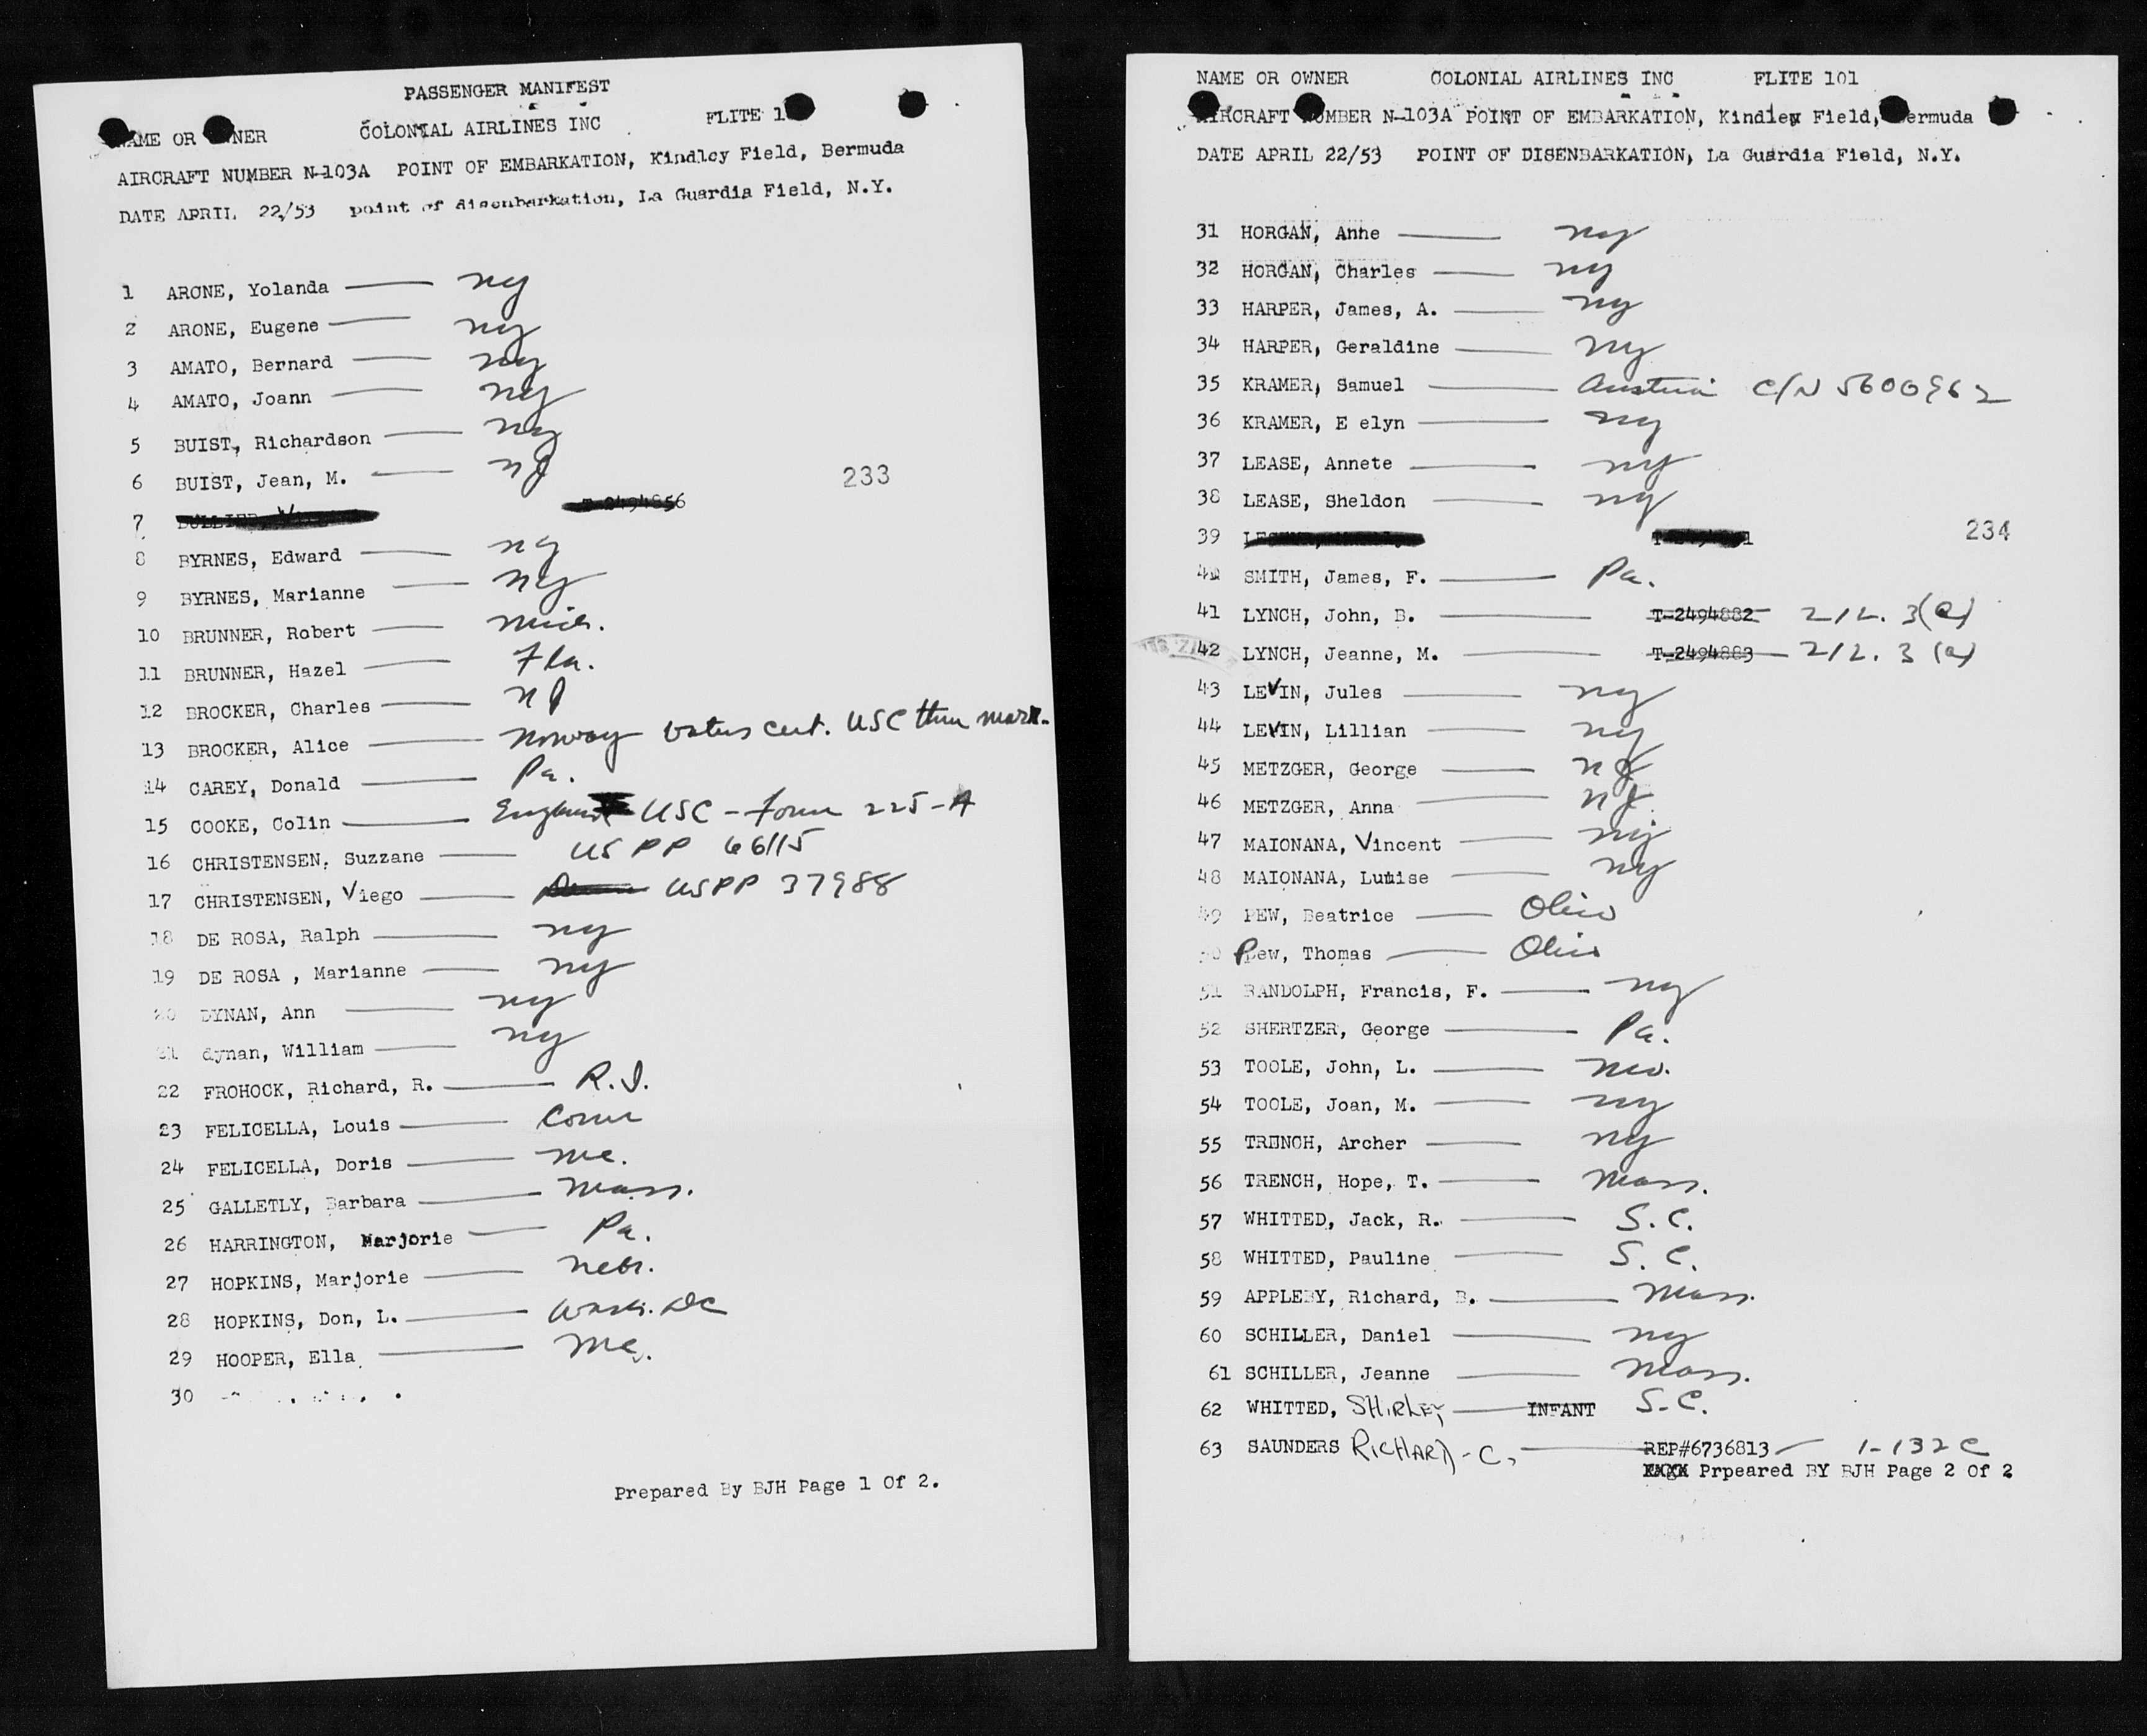 PASSENGER MANIFEST
NAME OR OWNER COLONIAL AIRLINES INC FLITE 1
AIRCRAFT NUMBER N-103A POINT OF EMBARKATION, Kindley Field, Bermuda
DATE APRIL 22/53 point of disenbarkation, La Guardia Field, N.Y.
1 ARONE, Yolanda ny
2 ARONE, Eugene ny
3 AMATO, Bernard ny
4 AMATO, Joann ny
5 BUIST, Richardson ny
6 BUIST, Jean, M. nJ
233
7
8 BYRNES, Edward ny
9 BYRNES, Marianne ny
10 BRUNNER, Robert
11 BRUNNER, Hazel Fla.
12 BROCKER, Charles nJ
13 BROCKER, Alice Norway Voters cert. USC thru marr.
14 CAREY, Donald Pa.
15 COOKE, Colin England USC - Form 225-A
16 CHRISTENSEN, Suzzane US PP 66115
17 CHRISTENSEN, Viego USPP 37988
18 DE ROSA, Ralph ny
19 DE ROSA , Marianne ny
20 DYNAN, Ann ny
21 dynan, William ny
22 FROHOCK, Richard, R. R.I.
23 FELICELLA, Louis Conn
24 FELICELLA, Doris Me.
25 GALLETLY, Barbara Mass.
26 HARRINGTON, Marjorie Pa.
27 HOPKINS, Marjorie Nebr.
28 HOPKINS, Don, L. Wash. DC
29 HOOPER, Ella Me.
30
Prepared By BJH Page 1 Of 2.
NAME OR OWNER COLONIAL AIRLINES INC FLITE 101
AIRCRAFT NUMBER N-103A POINT OF EMBARKATION, Kindley Field, Bermuda
DATE APRIL 22/53 POINT OF DISENBARKATION, La Guardia Field, N.Y.
31 HORGAN, Anne ny
32 HORGAN, Charles ny
33 HARPER, James, A. ny
34 HARPER, Geraldine ny
35 KRAMER, Samuel Austria C/N 5600962
36 KRAMER, E elyn ny
37 LEASE, Annete ny
38 LEASE, Sheldon ny
39
234
40 SMITH, James, F. Pa.
41 LYNCH, John, B. T-2494882 212. 3(a)
42 LYNCH, Jeanne, M. T-2494883 212. 3 (a)
43 LEVIN, Jules ny
44 LEVIN, Lillian ny
45 METZGER, George nJ
46 METZGER, Anna nJ
47 MAIONANA, Vincent ny
48 MAIONANA, Luuise ny
49 PEW, Beatrice Ohio
50 Pew, Thomas Ohio
51 RANDOLPH, Francis, F. ny
52 SHERTZER, George Pa.
53 TOOLE, John, L. Mo.
54 TOOLE, Joan, M. ny
55 TRENCH, Archer ny
56 TRENCH, Hope, T. Mass.
57 WHITTED, Jack, R. S.C.
58 WHITTED, Pauline S.C.
59 APPLEBY, Richard, B. Mass.
60 SCHILLER, Daniel ny
61 SCHILLER, Jeanne Mass.
62 WHITTED, SHIRLEY INFANT S.C.
63 SAUNDERS RICHARD-C. REP#6736813 1-132 C
Prpeared BY BJH Page 2 Of 2